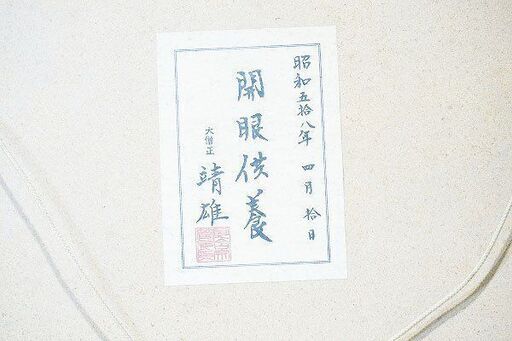 昭和五拾八年 四月 拾日
開眼供養
大僧正 靖雄